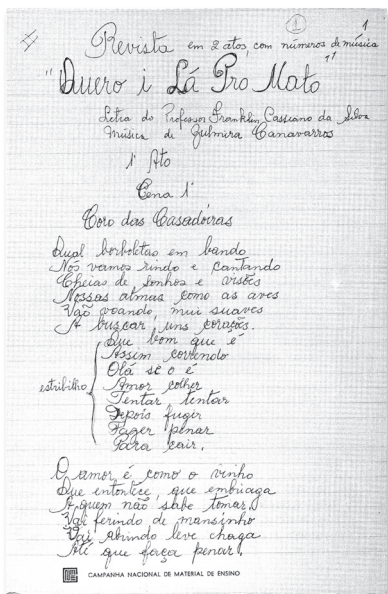 1
1
Revista em 2 atos, com números de música
"Quero i Lá Pro Mato"
Letra do Professor Franklin Cassiano da Silva
Música de Zulmira Canavarros
1º Ato
Cena 1ª
Coro das Casadoiras
Qual borboletas em bando
Nós vamos rindo e cantando
Cheias de sonhos e visões
Nossas almas como as aves
Vão voando, mui suaves
A buscar uns corações.
Que bom que é
Assim correndo
Olá se o é
Amor colher
estribilho
Tentar, tentar
Depois fugir
Fazer penar
Para cair.
O amor é como o vinho
Que entontece, que embriaga
A quem não sabe tomar.
Vai ferindo de mansinho
Vai abrindo leve chaga
Até que faça penar!
CAMPANHA NACIONAL DE MATERIAL DE ENSINO